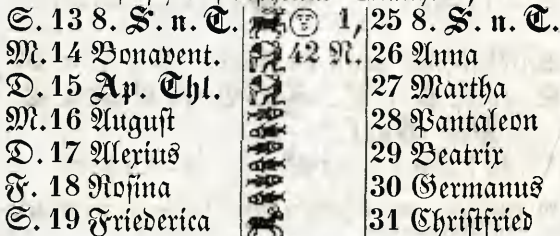 S. 13 8. S. n. T. 1, 25 8. S. n. T.
M. 14 Bonavent. 42 N. 26 Anna
D. 15 Ap. Thl. 27 Martha
M. 16 August 28 Pantaleon
D. 17 Alexius 29 Beatrix
F. 18 Rosina 30 Germanus
S. 19 Friederica 31 Christfried